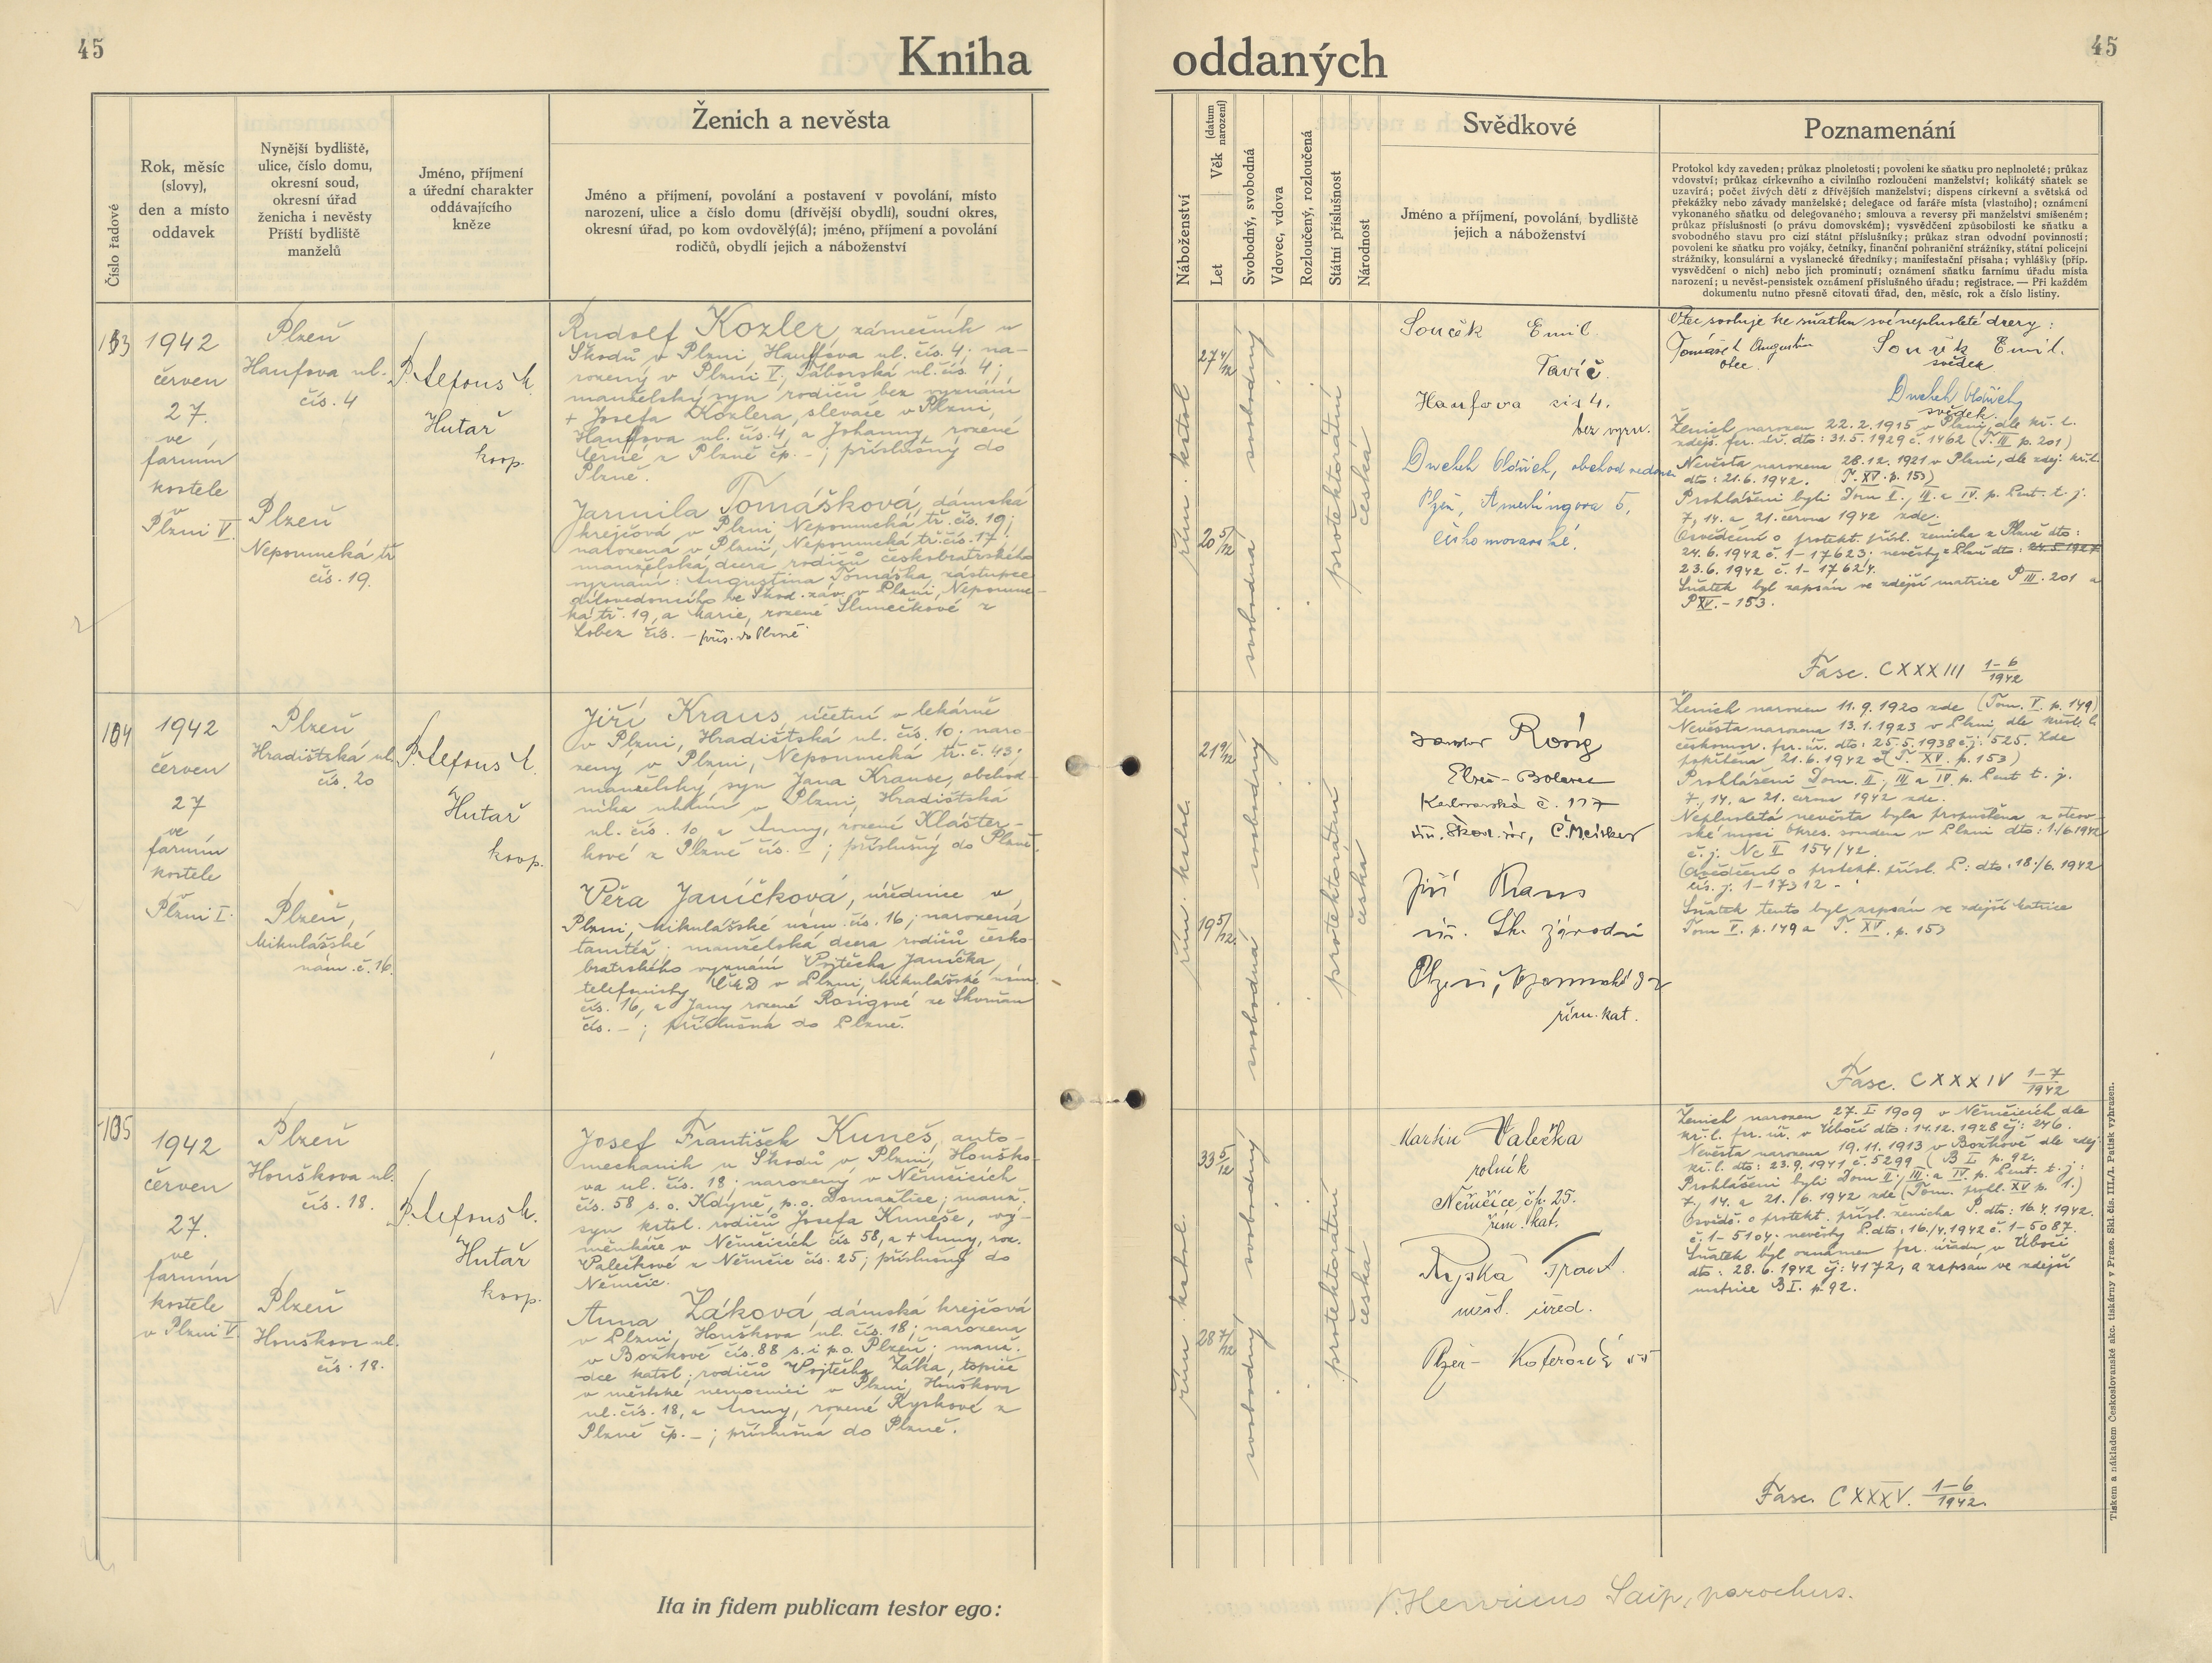 45
Kniha
oddaných
45
Číslo řadové
Rok, měsíc
(slovy),
den a místo
oddavek
Nynější bydliště,
ulice, číslo domu,
okresní soud,
okresní úřad
ženicha i nevěsty
Příští bydliště
manželů
Jméno, příjmení
a úřední charakter
oddávajícího
kněze
Ženich a nevěsta
Jméno a příjmení, povolání a postavení v povolání, místo
narození, ulice a číslo domu (dřívější obydlí), soudní okres,
okresní úřad, po kom ovdovělý(á); jméno, příjmení a povolání
rodičů, obydlí jejich a náboženství
Náboženství
Let
Věk (datum narození)
Svobodný, svobodná
Vdovec, vdova
Rozloučený, rozloučená
Státní příslušnost
Národnost
Svědkové
Jméno a příjmení, povolání, bydliště
jejich a náboženství
Poznamenání
Protokol kdy zaveden; průkaz plnoletosti; povolení ke sňatku pro neplnoleté; průkaz
vdovství; průkaz církevního a civilního rozloučení manželství; kolikátý sňatek se
uzavírá; počet živých dětí z dřívějších manželství; dispens církevní a světská od
překážky nebo závady manželské; delegace od faráře místa (vlastního); oznámení
vykonaného sňatku od delegovaného; smlouva a reversy při manželství smíšeném;
průkaz příslušnosti (o právu domovském); vysvědčení způsobilosti ke sňatku a
svobodného stavu pro cizí státní příslušníky; průkaz stran odvodní povinnosti;
povolení ke sňatku pro vojáky, četníky, finanční pohraniční strážníky, státní policejní
strážníky, konsulární a vyslanecké úředníky; manifestační přísaha; vyhlášky (příp.
vysvědčení o nich) nebo jich prominutí; oznámení sňatku farnímu úřadu místa
narození; u nevěst-pensistek oznámení příslušného úřadu; registrace. — Při každém
dokumentu nutno přesně citovati úřad, den, měsíc, rok a číslo listiny.
103
1942
červen
27.
ve
farním
kostele
Plzni V.
Plzeň
Haufova ul.
čís. 4
Plzeň
Nepomucká tř.
čís. 19.
P. Alfons M.
Hutař
koop.
Rudolf Kozler, zámečník u
Škodů v Plzni, Hauffova ul. čís. 4; na-
rozený v Plzni V., Táborská ul. čís. 4;
manželský syn rodičů bez vyznání
+ Josefa Kozlera, slevače v Plzni,
Hauffova ul. čís. 4, a Johanny, rozené
Černé z Plzně čp. – ; příslušný do
Plzně.
Jarmila Tomášková, dámská
krejčová v Plzni, Nepomucká tř. čís. 19;
narozena v Plzni, Nepomucká tř. čís. 17;
manželská dcera rodičů českobratrského
vyznání: Augustina Tomáška, zástupce
dílovedoucího ve Škod. záv. v Plzni, Nepomuc-
ká tř. 19, a Marie, rozené Slunečkové z
Lobez čís. – přís. do Plzně.
řím. katol.
27 4/12
20 5/12
svobodný
svobodná
protektorátní
česká
Souček Emil
Haufova čis 4.
bez vyzn.
Oldřich, obchod vedoucí
Plzeň, Amerlingova 5,
českomoravské.
Otec svoluje ke sňatku své neplnoleté dcery:
Tomášek Augustin
otec.
Souček Emil.
svědek
Oldřich
svědek.
Ženich narozen 22.2.1915 v Plzni, dle kř. l.
zdejš. far. úř. dto: 31.5.1929 č. 1462 (T. III p. 201)
Nevěsta narozena 28.12.1921 v Plzni, dle zdej. kř. l.
dto: 21.6.1942. (T. XV. p. 153)
Prohlášeni byli Dom II., III. a IV. p. Pent. t. j.
7, 14. a 21. června 1942 zde.
Osvědčení o protekt. přísl. ženicha z Plzně dto:
24.6.1942 č. 1–17623; nevěsty z Plzně dto: 24.5.1927
23.6.1942 č. 1–17624.
Sňatek byl zapsán ve zdejší matrice P III. 201 a
P XV. – 153.
Fasc. CXXXIII 1–6/1942
104
1942
červen
27
ve
farním
kostele
Plzni V.
Plzeň
Hradištská ul.
čís. 20
Plzeň,
Mikulášské
nám. č. 16.
P. Alfons M.
Hutař
koop.
Jiří Kraus, účetní v lekárně
v Plzni, Hradištská ul. čís. 10; naro-
zený v Plzni, Nepomucká tř. č. 43;
manželský syn Jana Krause, obchod-
níka uhlím v Plzni, Hradištská
ul. čís. 10, a Anny, rozené Klášter-
kové z Plzně čís. – ; příslušný do Plzně.
Věra Janíčková, úřednice v
Plzni, Mikulášské nám. čís. 16; narozená
tamtéž; manželská dcera rodičů česko-
bratrského vyznání Vojtěcha Janíčka,
telefonisty ČMD v Plzni, Mikulášské nám.
čís. 16, a Jany rozené Rosigové ze Skvrňan
čís. – ; příslušná do Plzně.
řím. katol.
21 9/12
19 5/12
svobodný
svobodná
protektorátní
česká
Jaroslav Rosig
Plzeň – Bolevec
Karlovarská č. 117
Jiří Kraus
úř. Šk. závodů
Plzeň,
řím. kat.
Ženich narozen 11.9.1920 zde (Tom. V. p. 149)
Nevěsta narozena 13.1.1923 v Plzni, dle křest. l.
českomor. far. úř. dto: 25.5.1938 čj: 525. Zde
pokřtěna 21.6.1942 (T. XV. p. 153)
Prohlášeni Dom. II., III a IV p. Pent t. j.
7., 14. a 21. června 1942 zde.
Neplnoletá nevěsta byla propuštěna z otcov-
ské moci Okres. soudem v Plzni dto: 1./6.1942
č. j. Nc II 154/42.
Osvědčení o protekt. přísl. P: dto: 18./6.1942
čís. j. 1–17312 –
Sňatek tento byl zapsán ve zdejší matrice
Tom V. p. 149 a T. XV. p. 153
Fasc. CXXXIV 1–7/1942
105
1942
červen
27.
ve
farním
kostele
v Plzni V.
Plzeň
Houškova ul.
čís. 18.
Plzeň
Houškova ul.
čís. 18.
P. Alfons M.
Hutař
koop.
Josef František Kuneš, auto-
mechanik u Škodů v Plzni, Houško-
va ul. čís. 18; narozený v Němčicích
čís. 58 s. o. Kdyně, p. o. Domažlice; manž.
syn katol. rodičů Josefa Kuneše, vý-
měnkáře v Němčicích čís 58, a + Anny, roz.
Valečkové z Němčic čís. 25; příslušný do
Němčic.
Anna Žáková, dámská krejčová
v Plzni, Houškova ul. čís. 18; narozena
v Božkově čís. 88 s. i p. o. Plzeň; manž.
dce katol. rodičů Vojtěcha Žáka, topiče
v městské nemocnici v Plzni, Houškova
ul. čís. 18, a Anny, rozené Ryskové z
Plzně čp. – ; příslušná do Plzně.
řím. katol.
33 5/12
28 7/12
svobodný
svobodný
protektorátní
česká
Martin Valečka
rolník
Němčice čp. 25.
řím. kat.
Frant.
měst. úřed.
Plzeň – 55
Ženich narozen 27. I 1909 v Němčicích dle
kř. l. far. úř. v Úbočí dto: 14.12.1928 čj: 246.
Nevěsta narozena 19.11.1913 v Božkově dle zdej
kř. l. dto: 23.9.1941 č. 5299 (B I p. 92.
Prohlášeni byli Dom II., III. a IV p. Pent. t. j:
7, 14. a 21./6.1942 zde (Tom. prohl. XV p. 1.)
Osvědč. o protekt. přísl. ženicha P. dto: 16.4.1942.
č. 1–5104. nevěsty P. dto: 16./4.1942 č. 1–5087.
Sňatek byl oznámen far. úřadu v Úbočí
dto: 28.6.1942 čj: 4172, a zapsán ve zdejší
matrice B I. p. 92.
Fasc. CXXXV. 1–6/1942
Ita in fidem publicam testor ego:
P. Henricus Saip, parochus.
Tiskem a nákladem Československé akc. tiskárny v Praze. Skl. čís. III./1. Patisk vyhrazen.